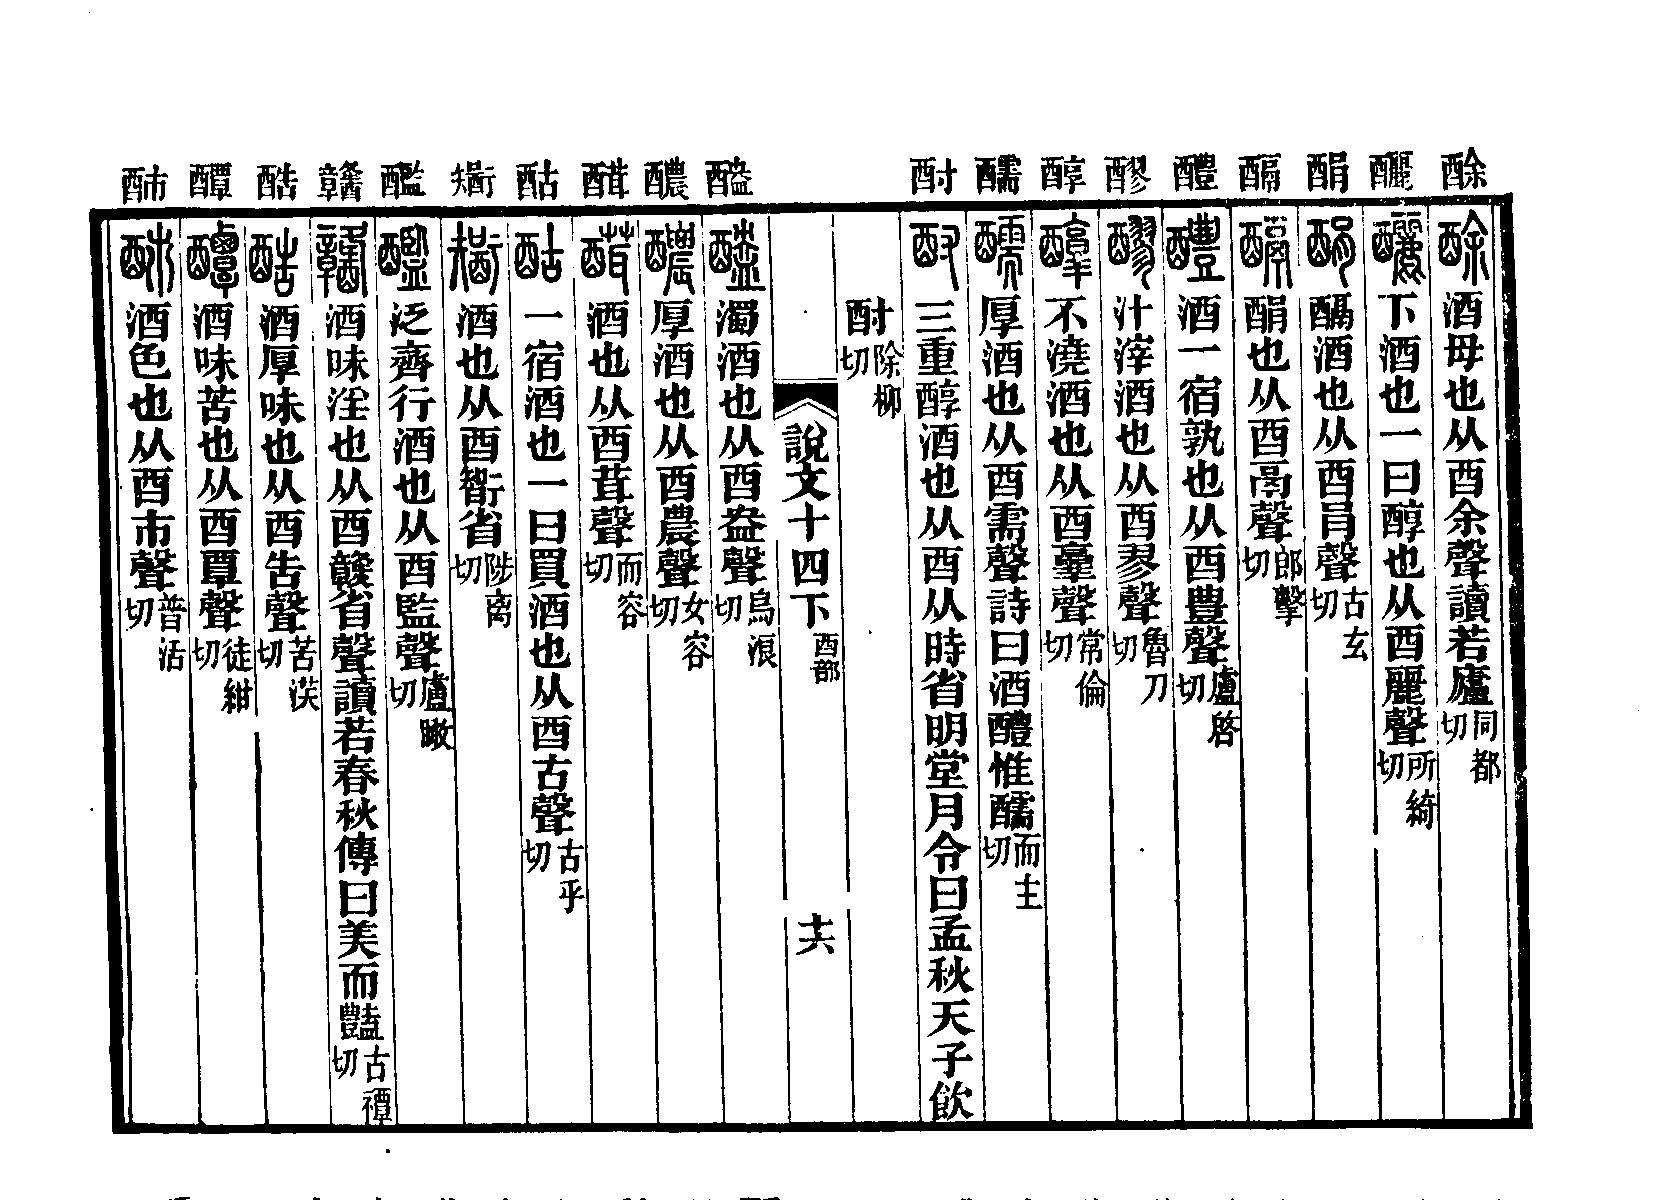 酴 釃 䣺 𨢌 醴 醪 醇 醹 酎
酴酒母也从酉余聲讀若廬同都切
釃下酒也一曰醇也从酉麗聲所綺切
䣺𨢌酒也从酉肙聲古玄切
𨢌䣺也从酉鬲聲郎擊切
醴酒一宿孰也从酉豊聲盧啓切
醪汁滓酒也从酉翏聲魯刀切
醇不澆酒也从酉𦎧聲常倫切
醹厚酒也从酉需聲詩曰酒醴惟醹而主切
酎三重醇酒也从酉从時省明堂月令曰孟秋天子飲
酎除柳切
說文十四下 酉部 十六
醠 醲 䤊 酤 䤘 酷 醰
醠濁酒也从酉盎聲烏浪切
醲厚酒也从酉農聲女容切
䤊酒也从酉茸聲而容切
酤一宿酒也一曰買酒也从酉古聲古乎切
酒也从酉省陟离切
䤘泛齊行酒也从酉監聲盧瞰切
酒味淫也从酉贛省聲讀若春秋傳曰美而豔古禫切
酷酒厚味也从酉告聲苦浂切
醰酒味苦也从酉覃聲徒紺切
酒色也从酉巿聲普活切